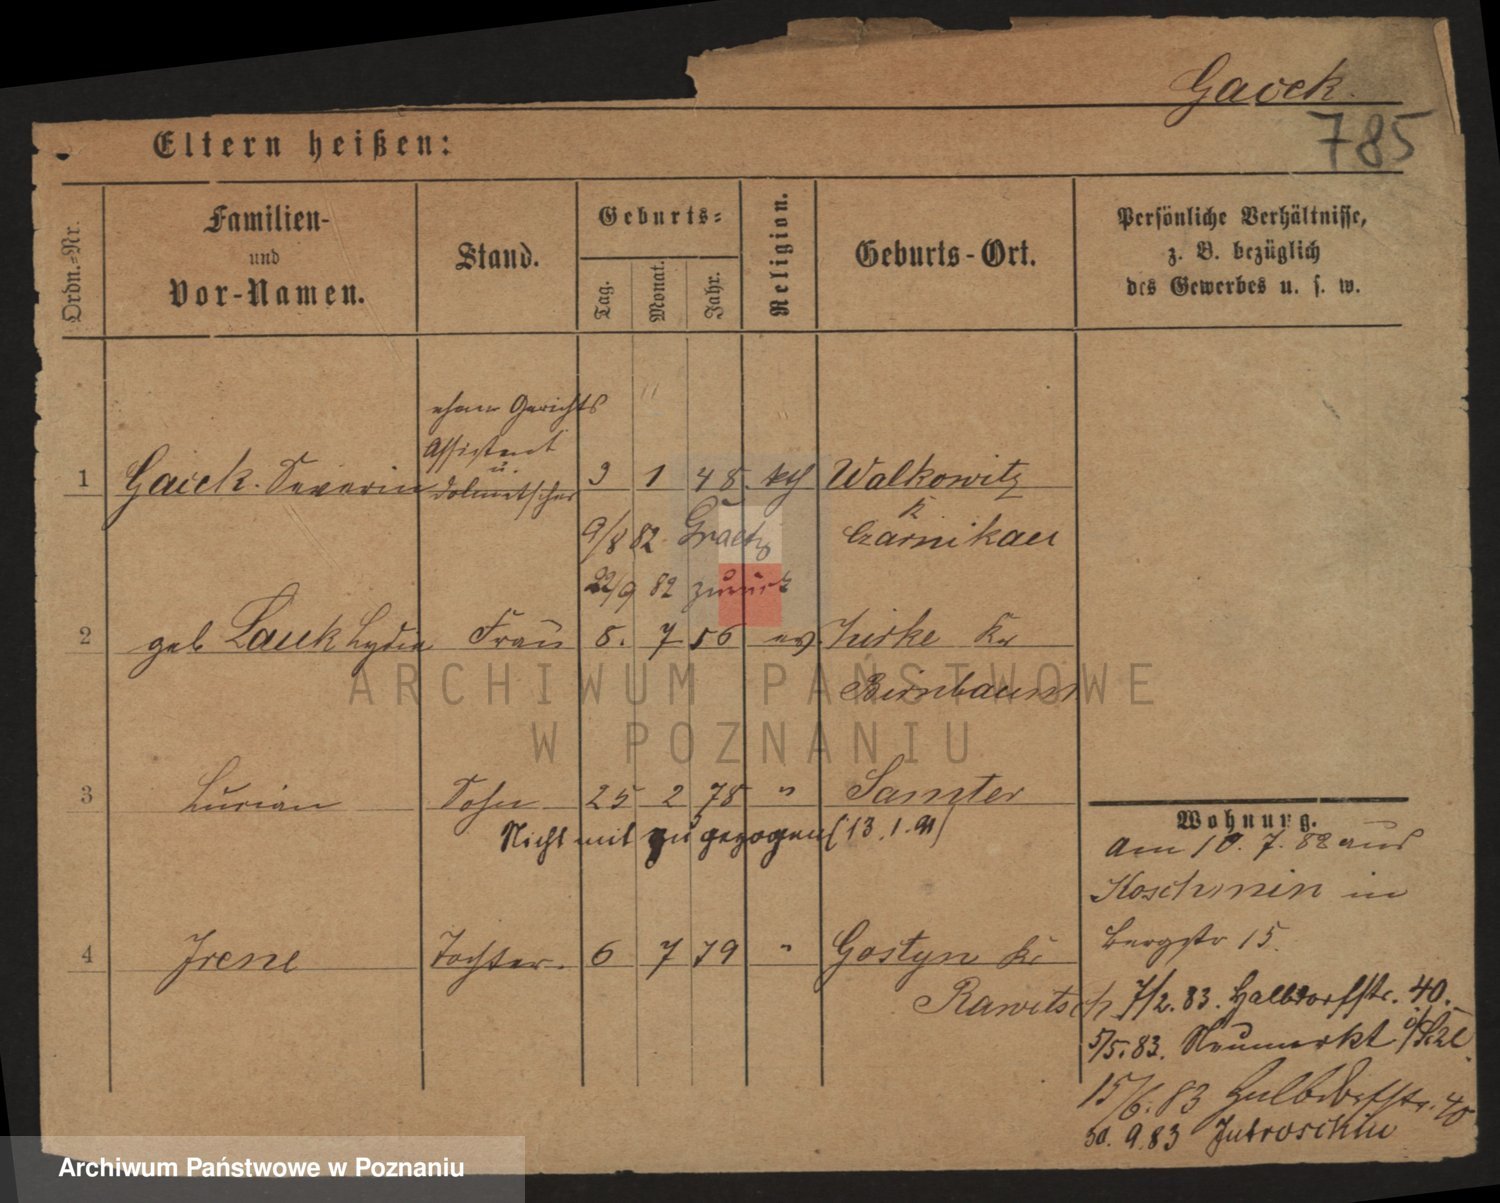 Gacek.
785
Eltern heißen:
Ordn.-Nr.
Familien-
und
Vor-Namen.
Stand.
Geburts-
Tag.
Monat.
Jahr.
Religion.
Geburts-Ort.
Persönliche Verhältnisse,
z. B. bezüglich
des Gewerbes u. s. w.
Gerichts
Assistent
u.
1 Gacek Severin Dolmetscher 3 1 48 kth Walkowitz
9/8 82 Graetz Czarnikau
22/9 82 zurück
2 geb Lauk Lydia Frau 8. 7 56 ev. Zirke Kr
Birnbaum
3 Lucian Sohn 25 2 78 " Samter
Nicht mit zugezogen (13.1.91)
4 Irene Tochter. 6 7 79 " Gostyn Kr
Rawitsch
Wohnung.
Am 10. 7. 82 aus
Koschmin in
Bergstr 15.
7/2. 83. Halbdorfstr. 40.
5/5. 83. Neumarkt
15/6. 83 Halbdorfstr. 40
30. 9. 83 Jutroschin
ARCHIWUM PAŃSTWOWE
W POZNANIU
Archiwum Państwowe w Poznaniu